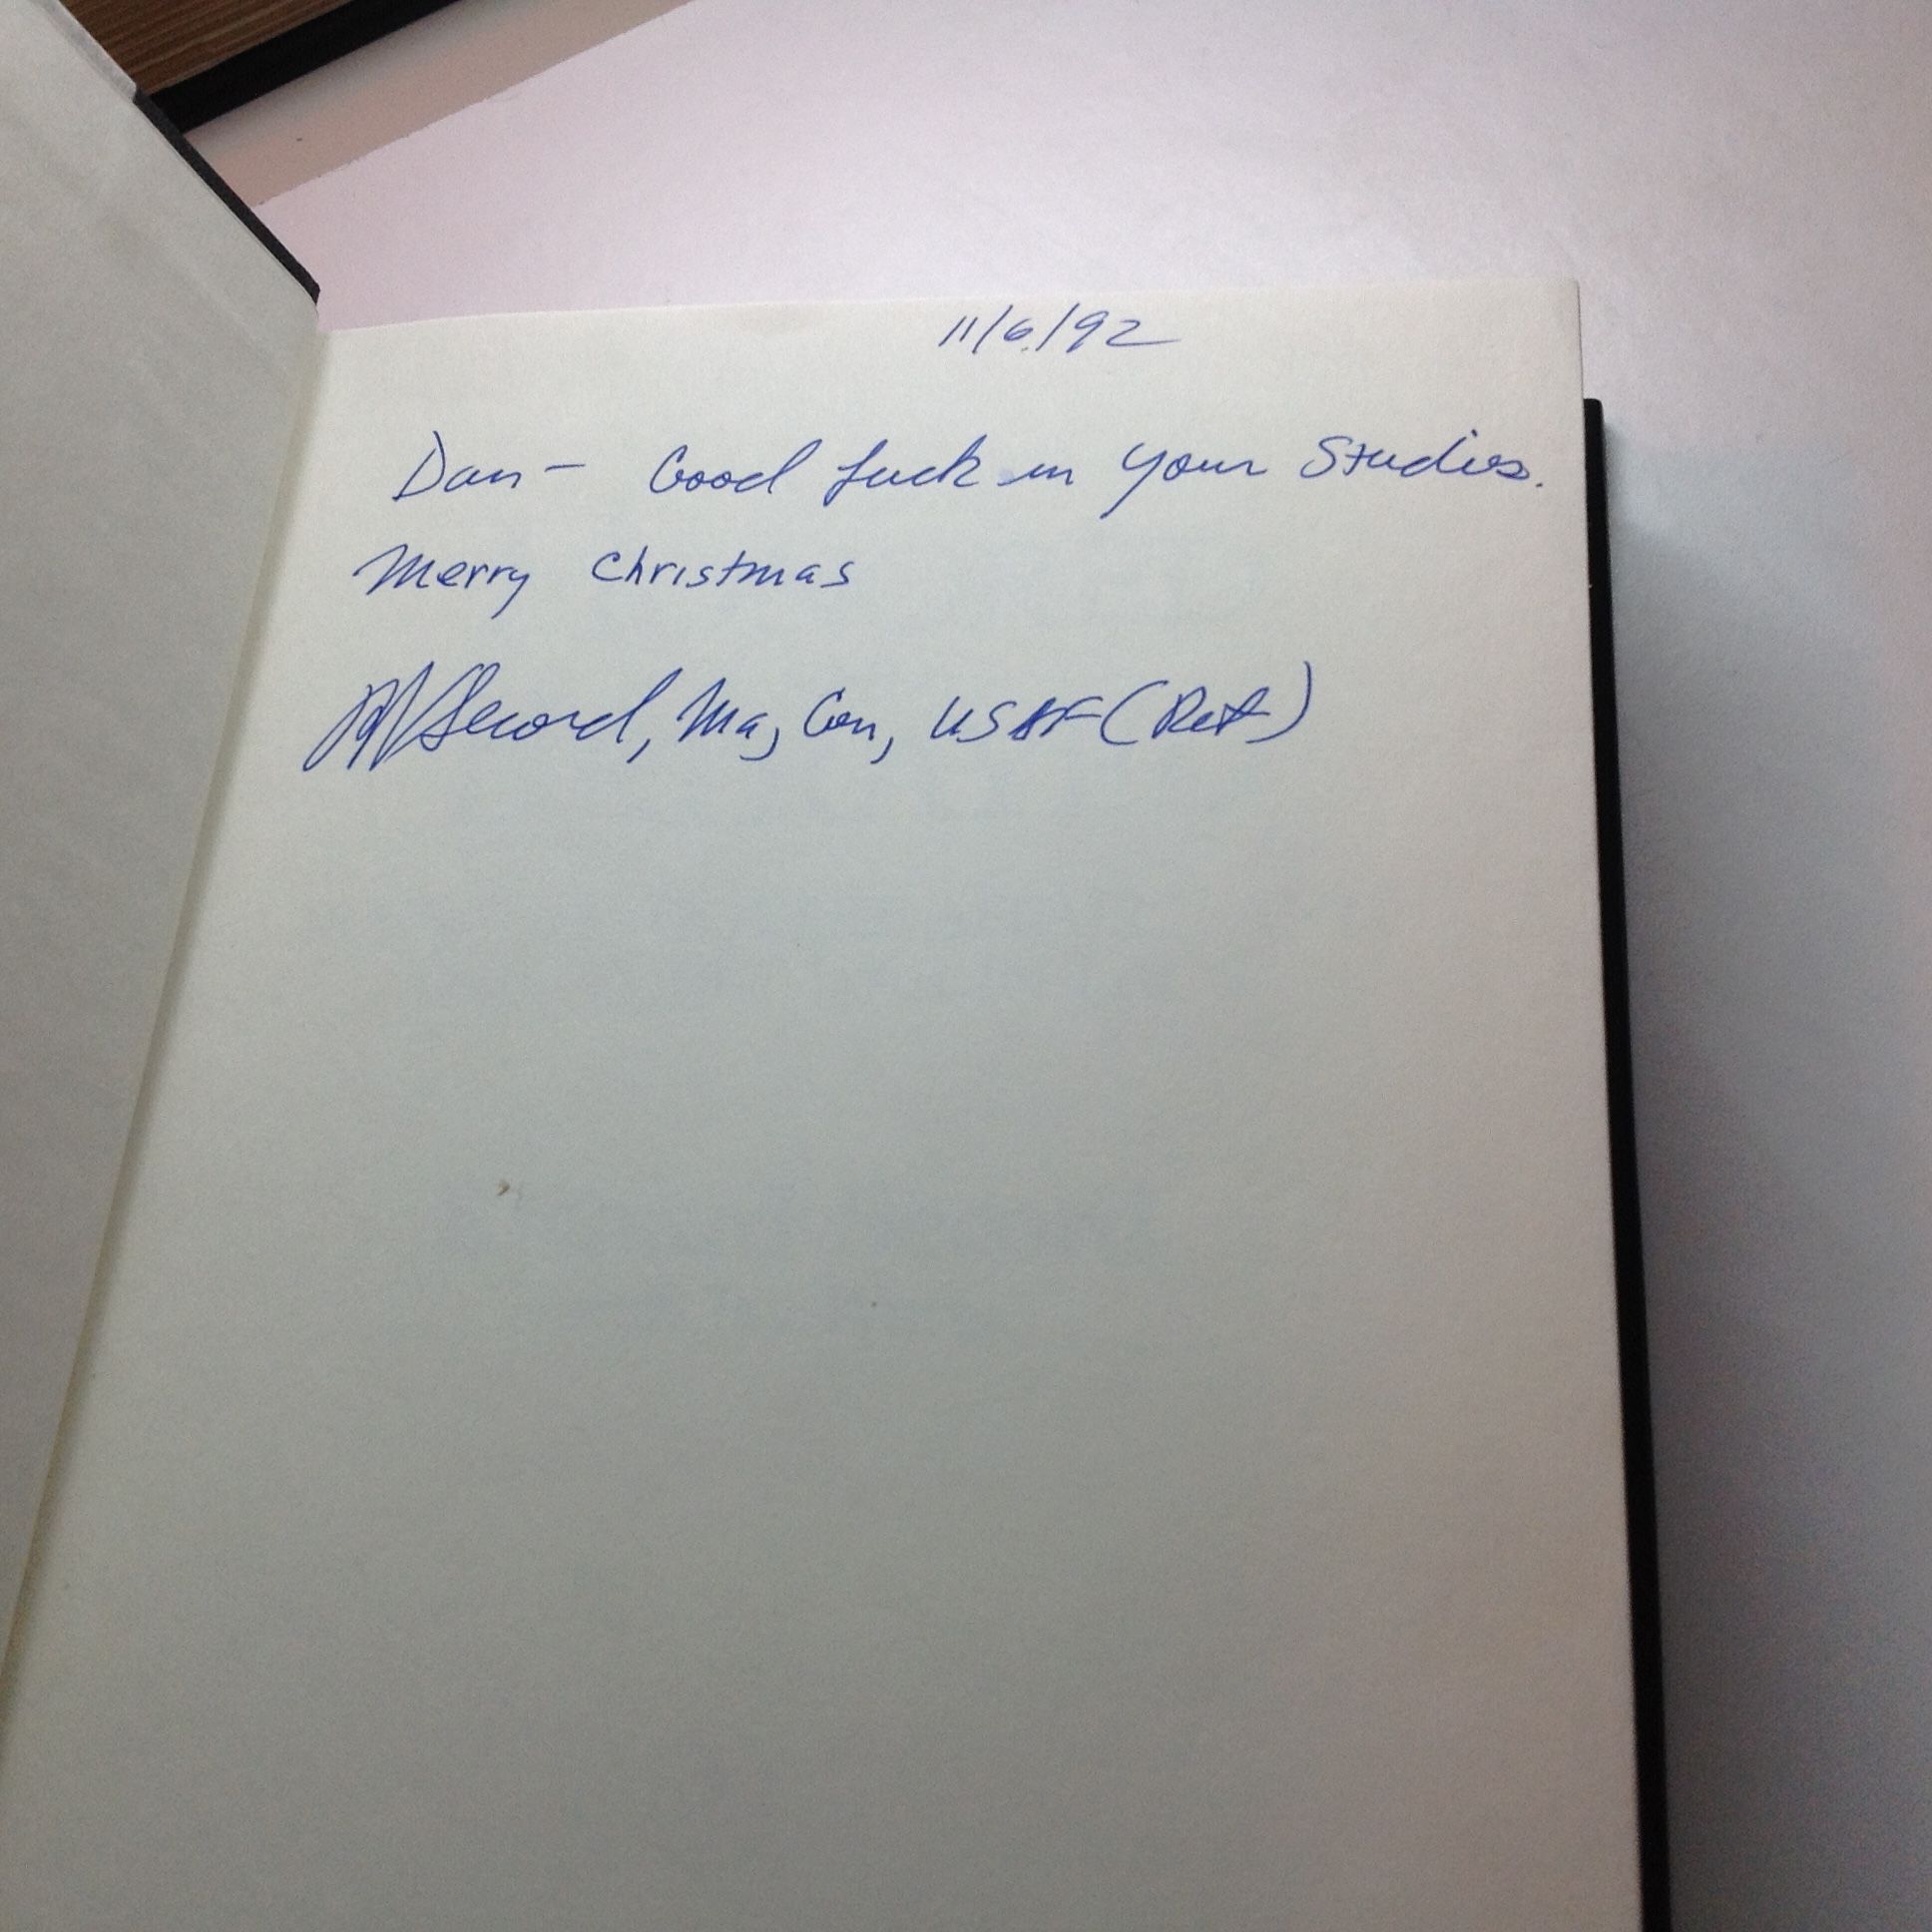 11/6/92
Dan - Good luck in your Studies.
Merry Christmas
RVSecord, Maj Gen, USAF (Ret)